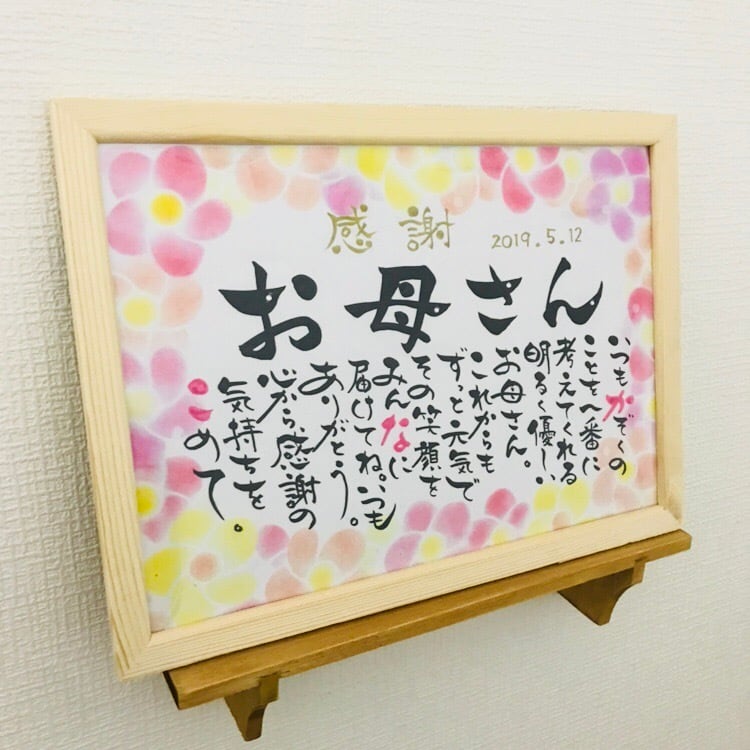 感謝 2019.5.12
お母さん
いつもかぞくの
ことを一番に
考えてくれる
明るく優しい
お母さん。
これからも
ずっと元気で
その笑顔を
みんなに
届けてね。いつも
ありがとう。
心から、感謝の
気持ちを
こめて。